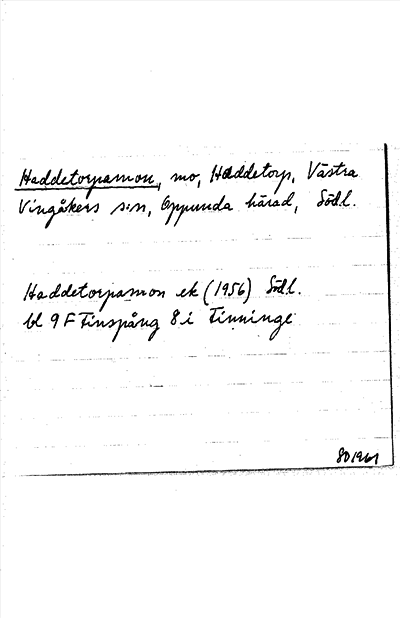 Haddetorpamon, mo, Haddetorp, Västra
Vingåkers sn, Oppunda härad, Södl.
Haddetorpamon ek (1956) Södl.
bl 9 F Finspång 8 i Finninge